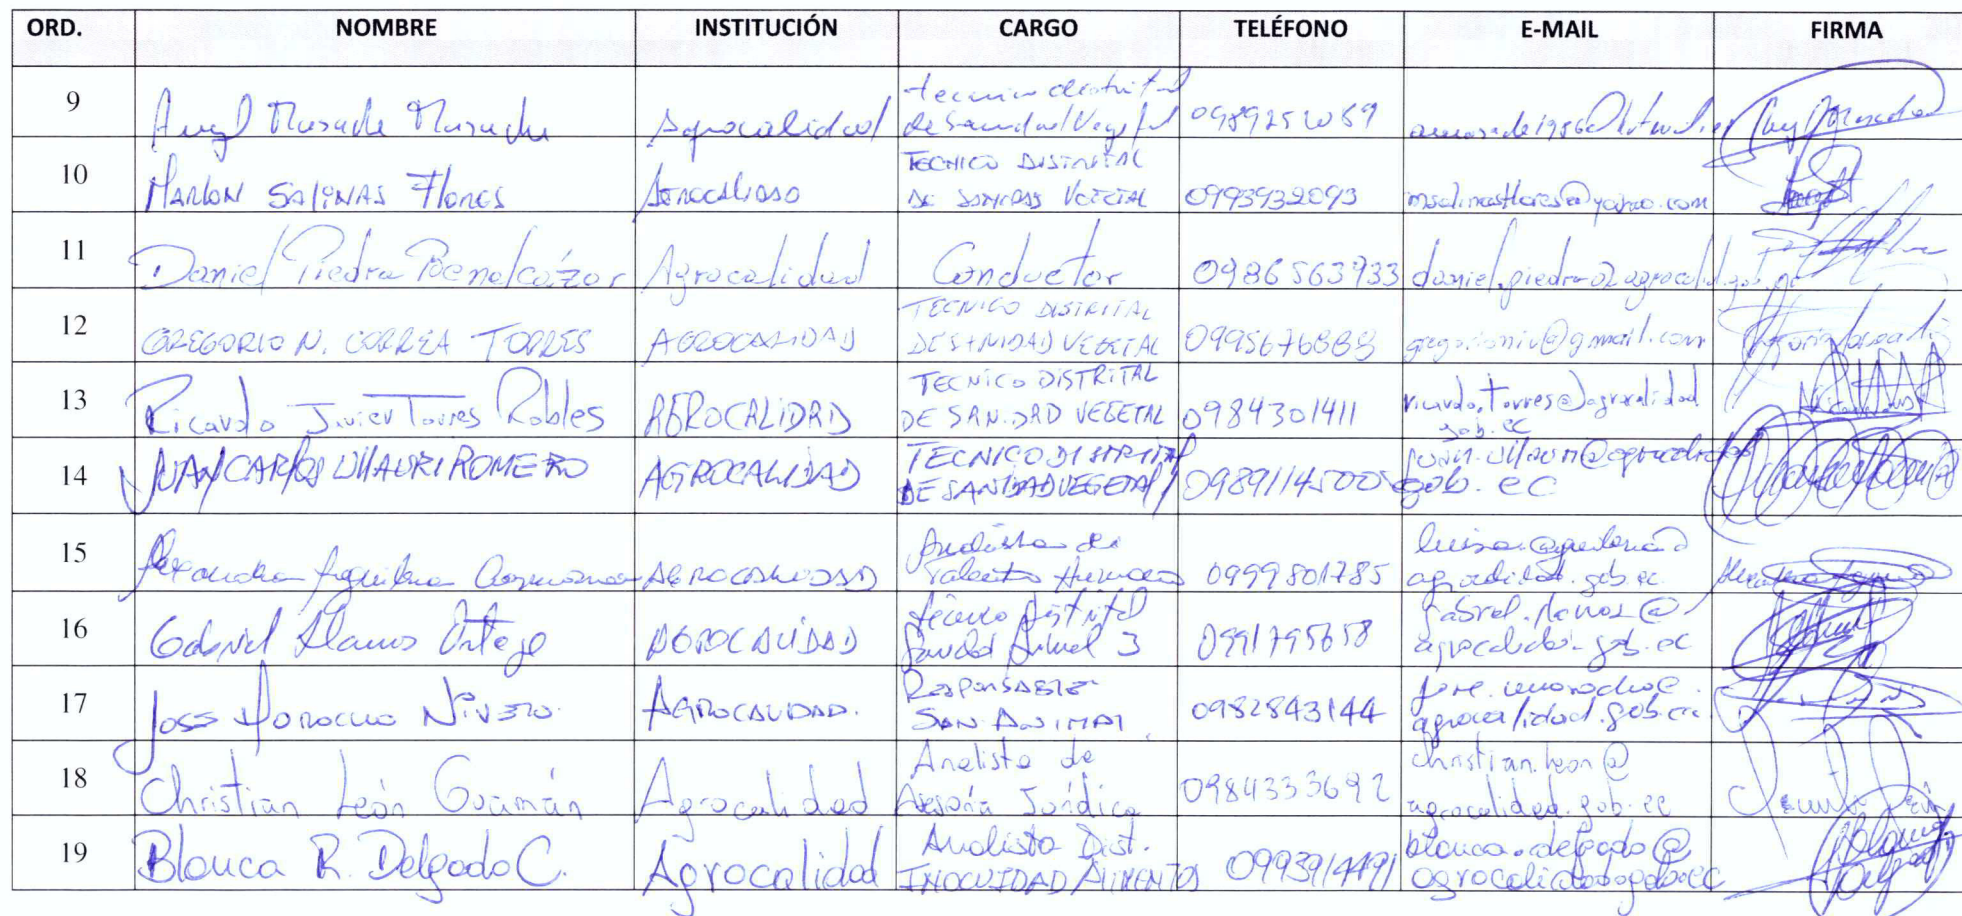 ORD. NOMBRE INSTITUCIÓN CARGO TELÉFONO E-MAIL FIRMA
9 Angel Masache Masache Agrocalidad tecnico distrital
de Sanidad Vegetal
10 MARLON SALINAS FLORES AGROCALIDAD TECNICO DISTRITAL
DE SANIDAD VEGETAL 0993932093 msalinasflores@yahoo.com
11 Daniel Piedra Benalcázar Agrocalidad Conductor 0986563933
12 GREGORIO N. CORREA TORRES AGROCALIDAD TECNICO DISTRITAL
DE SANIDAD VEGETAL 0995676888 gregorioniv@gmail.com
13 Ricardo Javier Torres Robles AGROCALIDAD TECNICO DISTRITAL
DE SANIDAD VEGETAL 0984301411 ricardo.torres@agrocalidad
gob.ec
14 JUAN CARLOS ULLAURI ROMERO AGROCALIDAD TECNICO DISTRITAL
DE SANIDAD VEGETAL gob.ec
15 Alexandra Aguilera AGROCALIDAD Analista de
Talento Humano 0999801785
agrocalidad.gob.ec
16 Gabriel Llanos Ortega AGROCALIDAD Técnico Distrital
Sanidad Animal 3 0991795658 gabriel.llanos@
agrocalidad.gob.ec
17 José Morocho Nivelo. AGROCALIDAD. RESPONSABLE
SAN. ANIMAL 0982843144 jose.morocho@
agrocalidad.gob.ec
18 Christian León Guamán Agrocalidad Analista de
Asesoría Jurídica 0984333692 christian.leon@
agrocalidad.gob.ec
19 Blanca R. Delgado C. Agrocalidad Analista Dist.
INOCUIDAD ALIMENTOS 0993914491 blanca.delgado@
agrocalidad.gob.ec